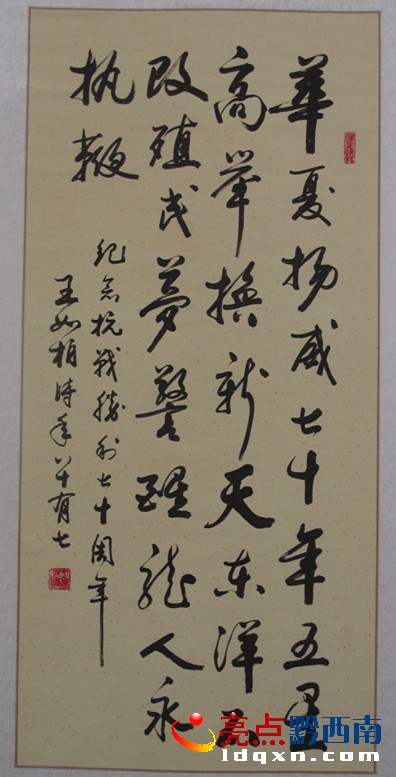 華夏揚威七十年五星
高举換新天东洋不
改殖民夢警醒龍人永
执鞭
纪念抗战勝利七十周年
王如柏時年八十有七
亮点黔西南
ldqxn.com